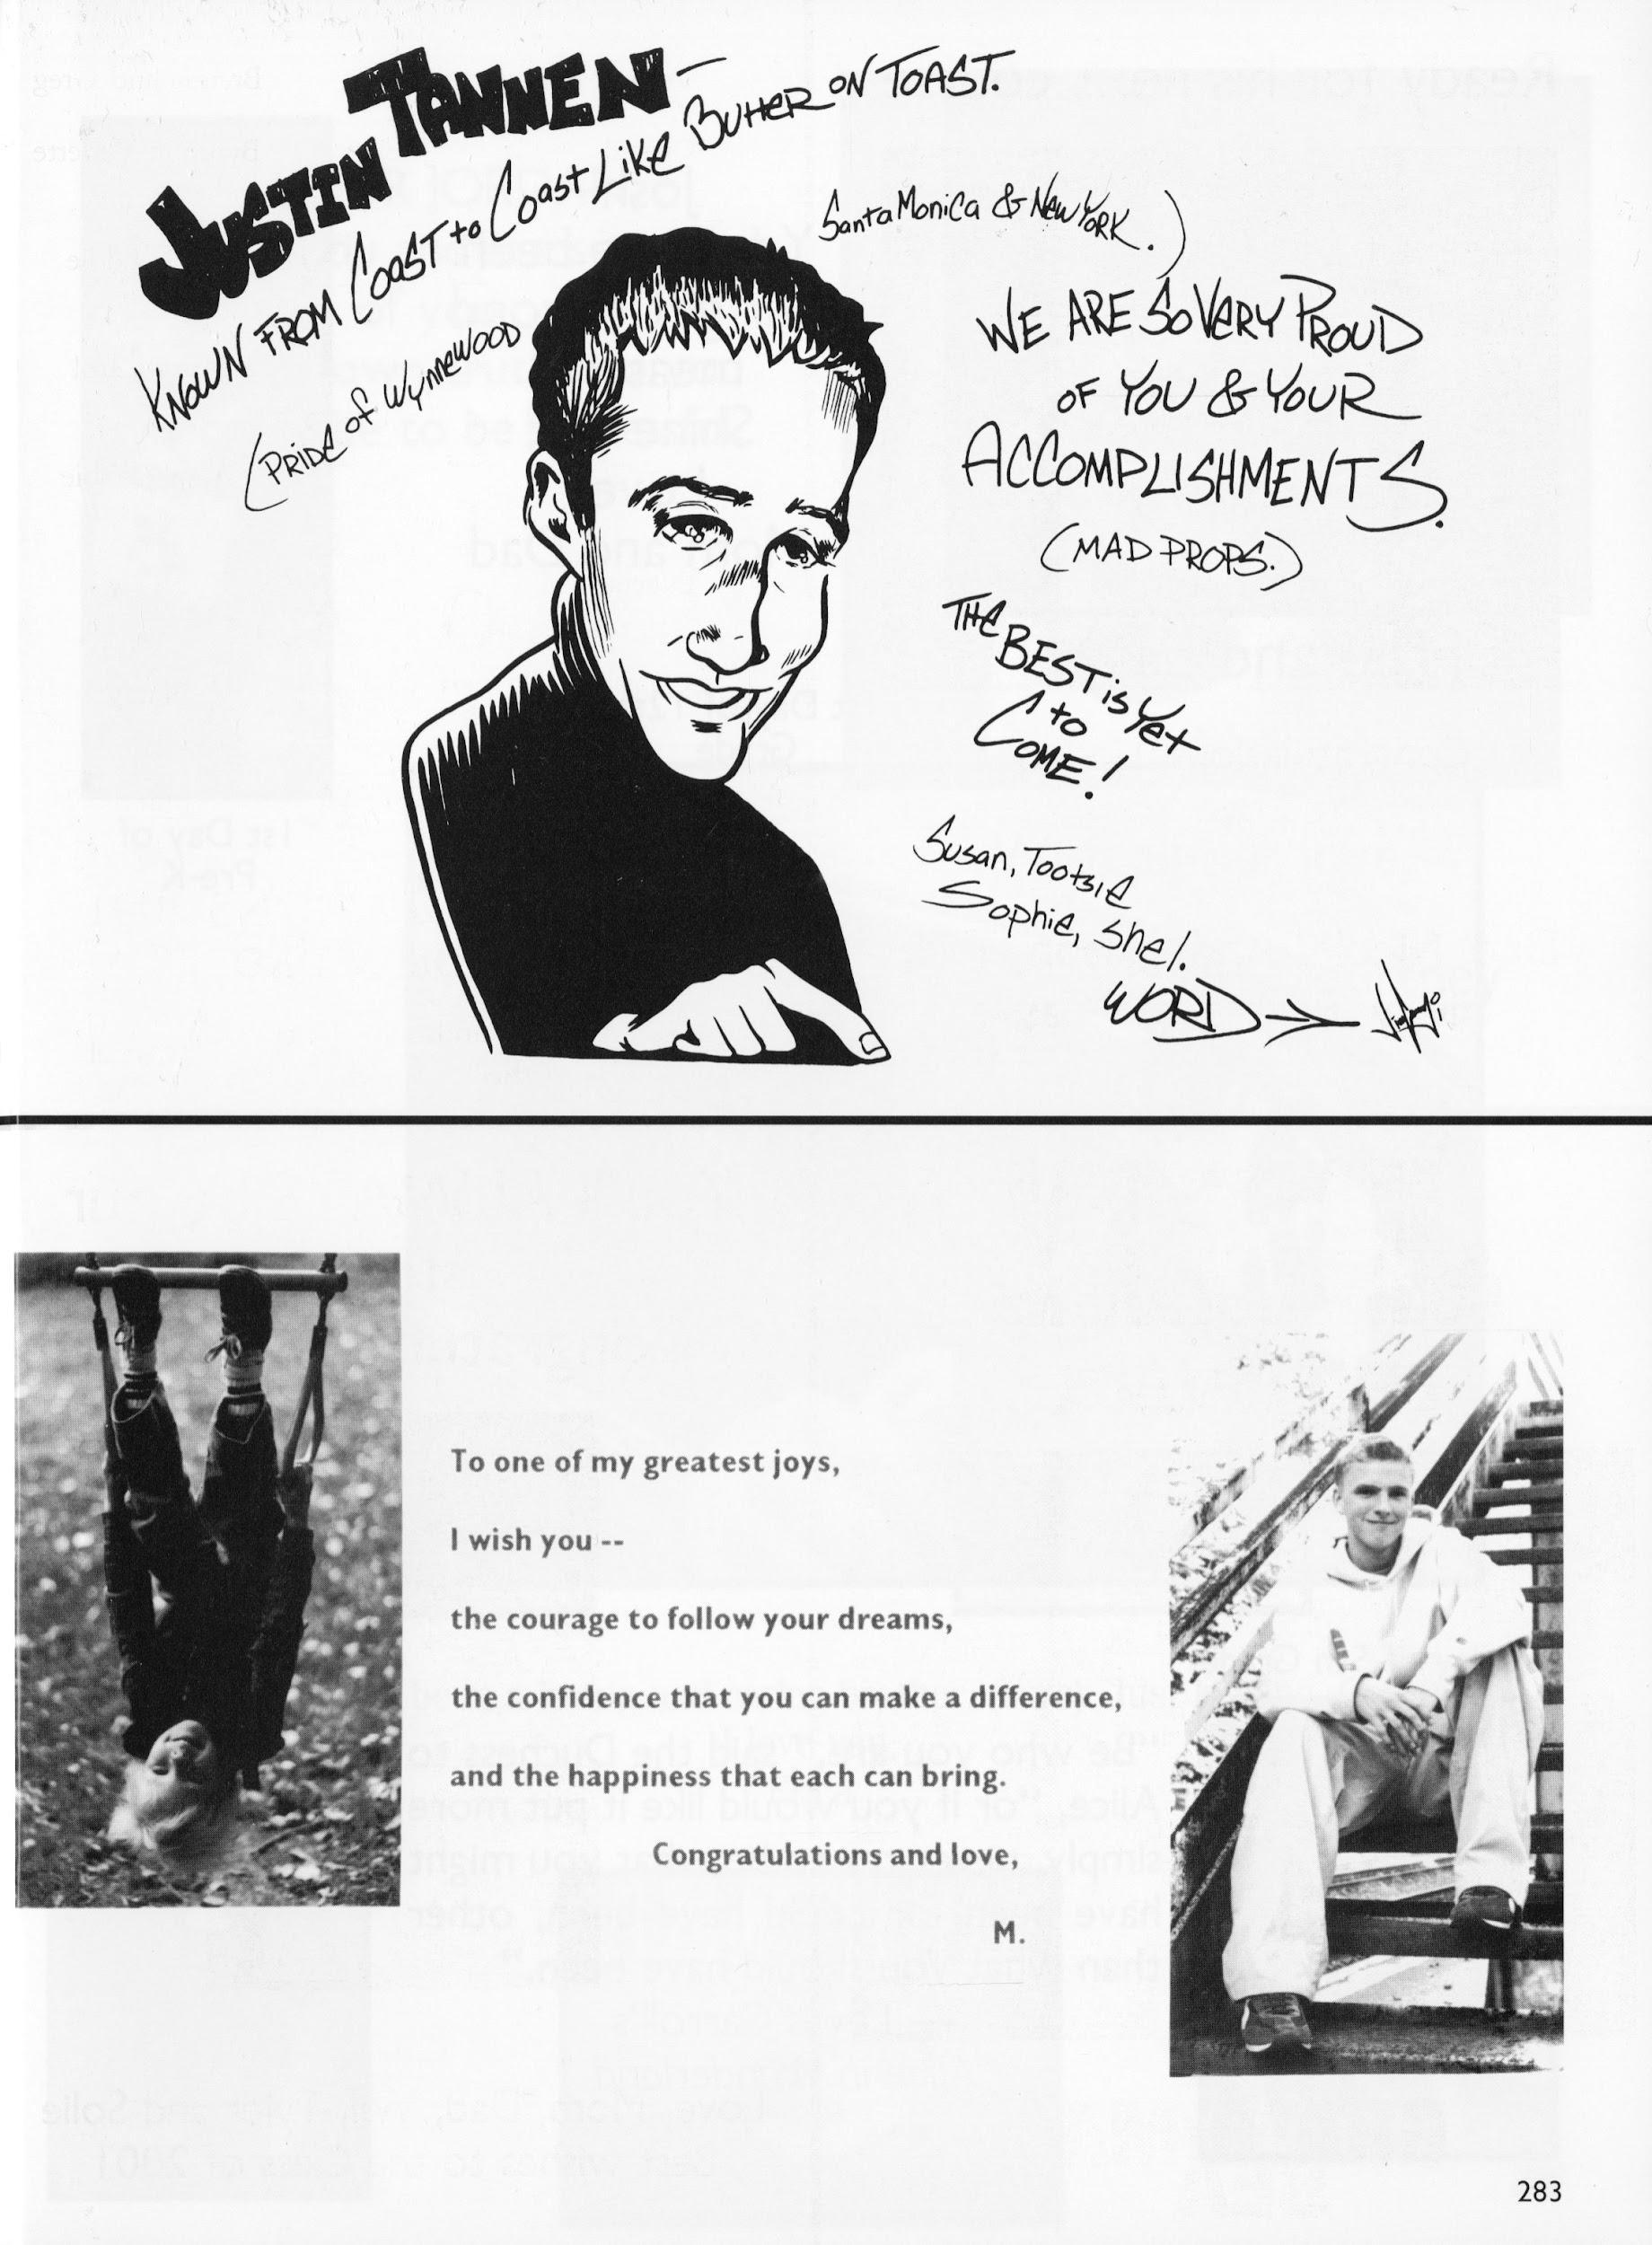 JUSTIN TANNEN –
KNOWN FROM COAST to COast LiKe BUTTER ON TOAST.
(PRIDE of WYnneWOOD
SantaMoniCa & NewYORK.)
WE ARE SoVeRY PROUD
OF YOU & YOUR
ACCOMPLISHMENTS.
(MAD PROPS.)
THE BEST is Yet
to
COME!
Susan, Tootsie
Sophie, shel.
WORD
To one of my greatest joys,
I wish you --
the courage to follow your dreams,
the confidence that you can make a difference,
and the happiness that each can bring.
Congratulations and love,
M.
283